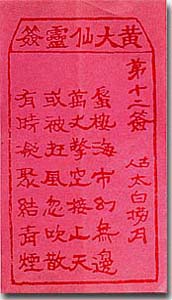 黃大仙靈簽
第十二簽
古人 太白撈月
蜃樓海市幻無邊
萬丈擎空接上天
或被狂風忽吹散
有時凝聚結青煙